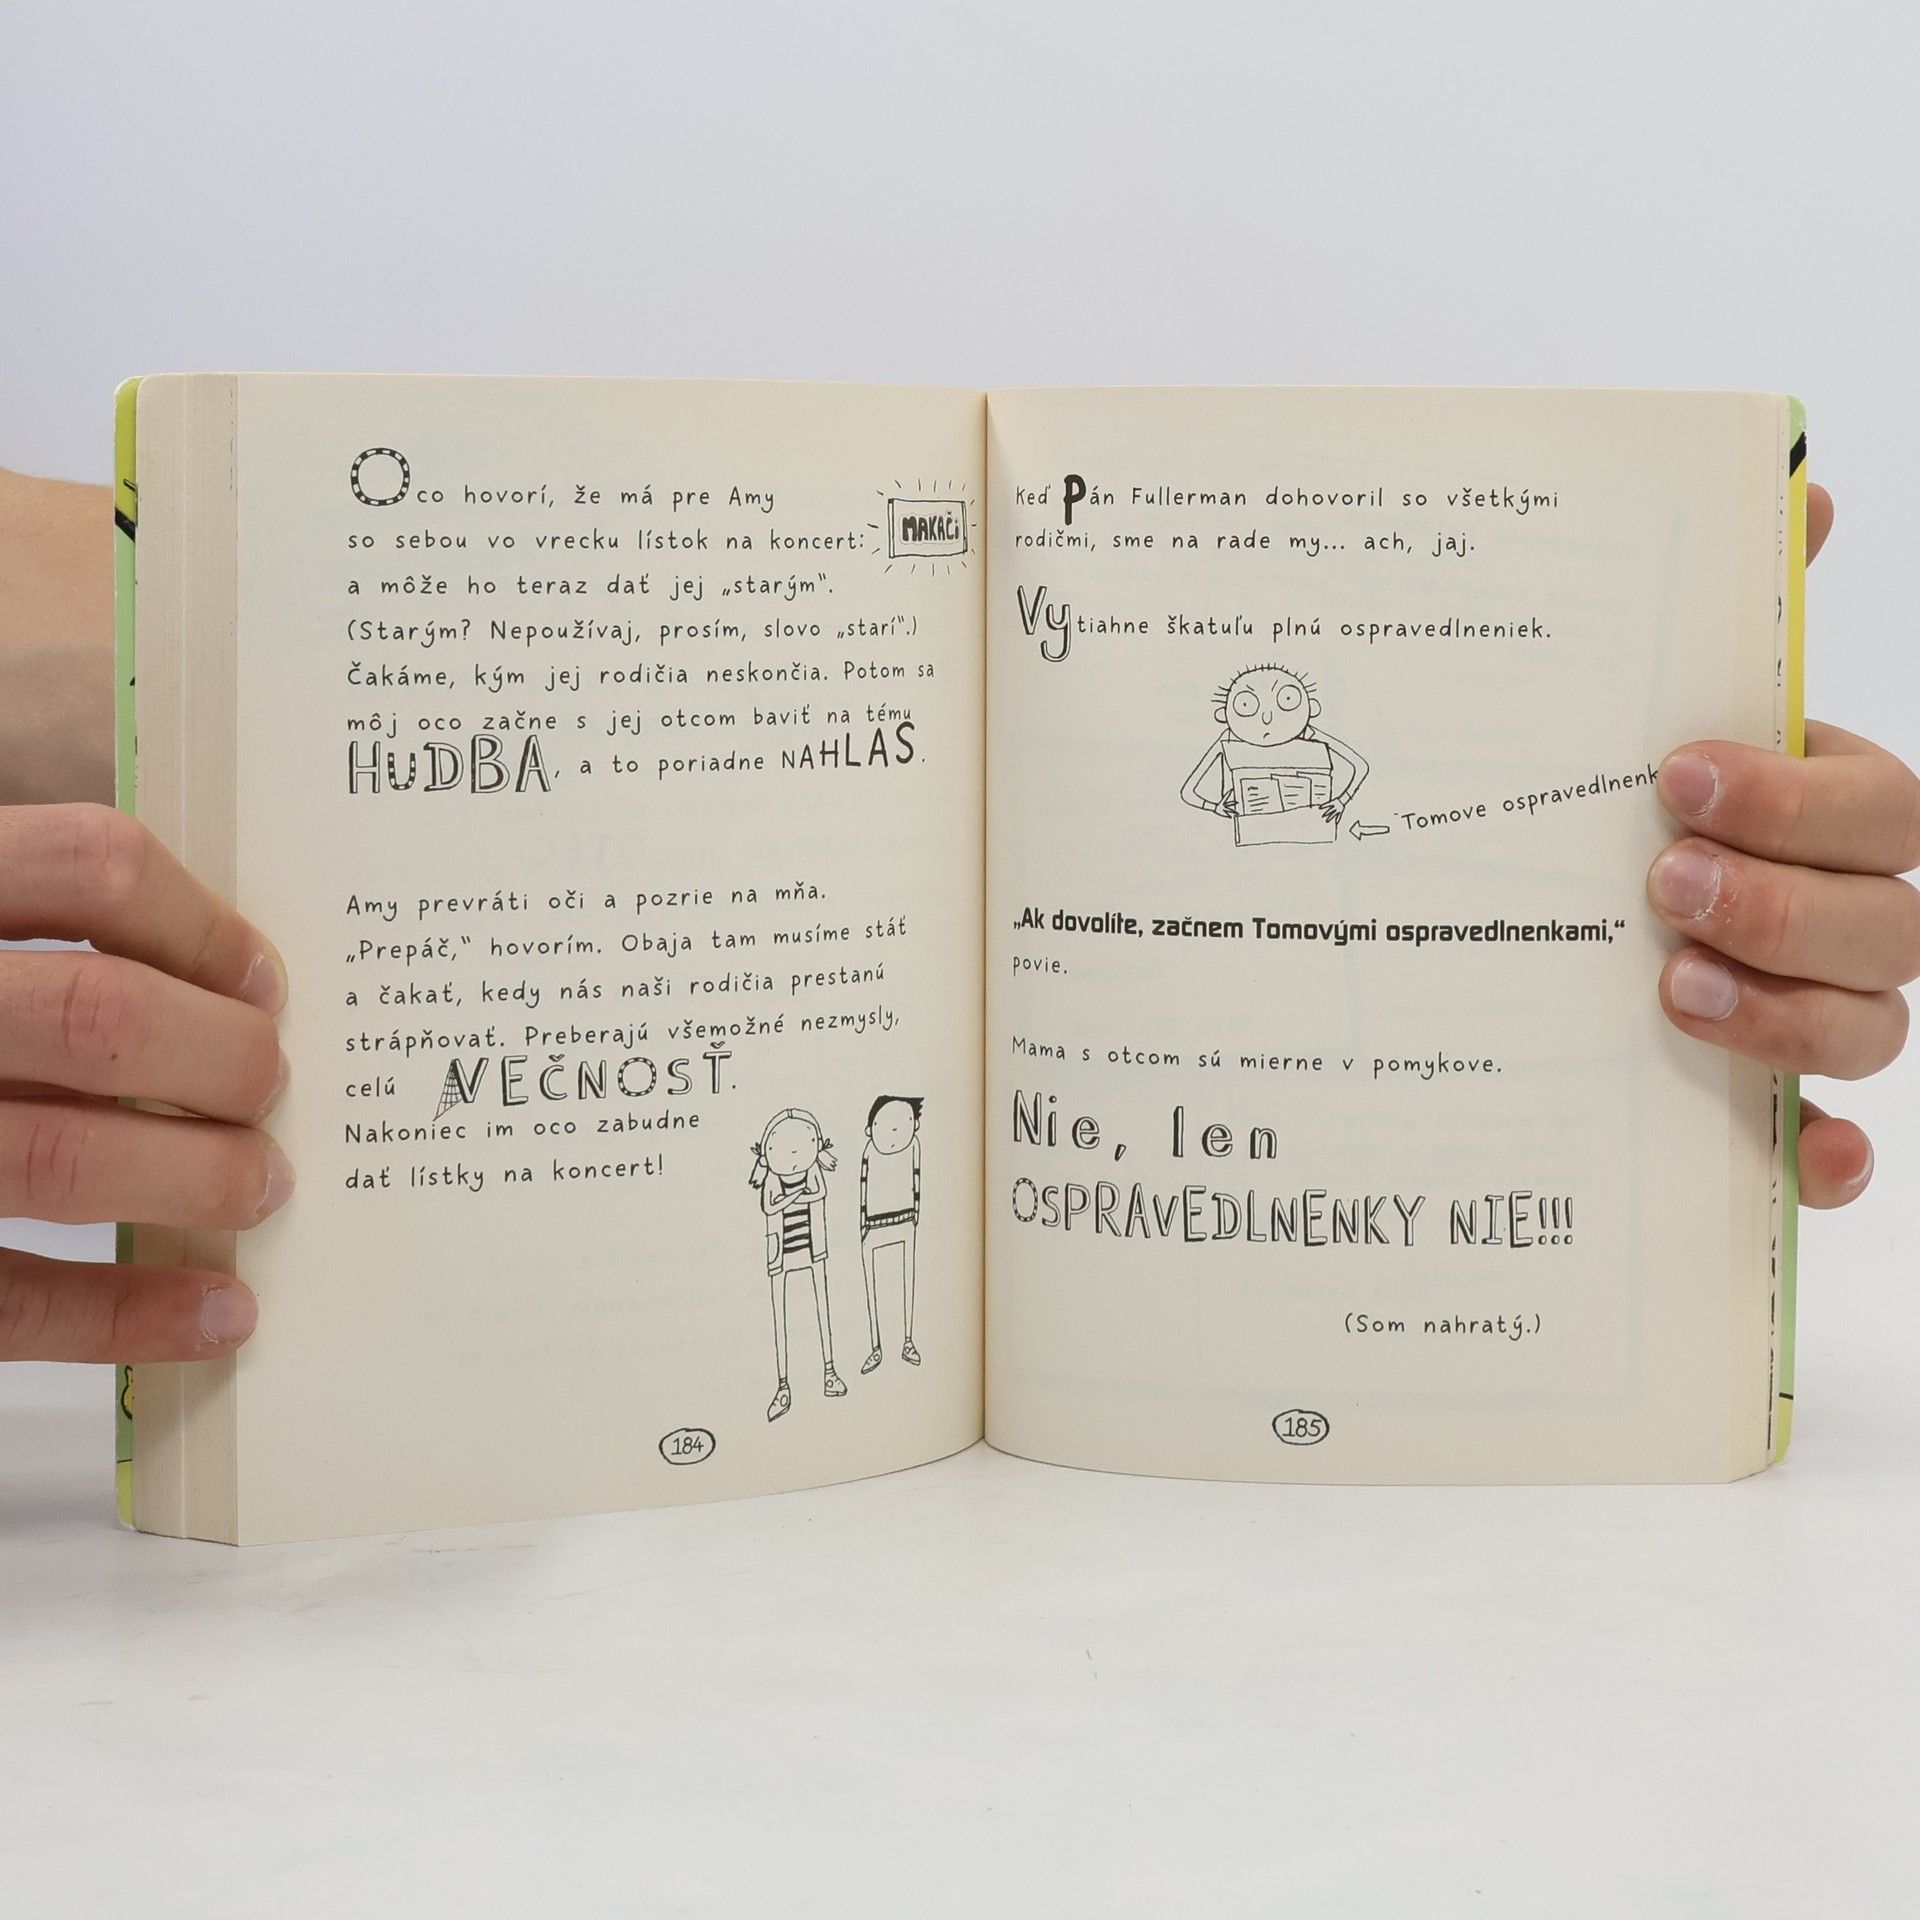 Oco hovorí, že má pre Amy
so sebou vo vrecku lístok na koncert:
MAKAČi
a môže ho teraz dať jej „starým“.
(Starým? Nepoužívaj, prosím, slovo „starí“.)
Čakáme, kým jej rodičia neskončia. Potom sa
môj oco začne s jej otcom baviť na tému
HUDBA, a to poriadne NAHLAS.
Amy prevráti oči a pozrie na mňa.
„Prepáč,“ hovorím. Obaja tam musíme stáť
a čakať, kedy nás naši rodičia prestanú
strápňovať. Preberajú všemožné nezmysly,
celú VEČNOSŤ.
Nakoniec im oco zabudne
dať lístky na koncert!
184
Keď Pán Fullerman dohovoril so všetkými
rodičmi, sme na rade my... ach, jaj.
Vytiahne škatuľu plnú ospravedlneniek.
Tomove
„Ak dovolíte, začnem Tomovými ospravedlnenkami,“
povie.
Mama s otcom sú mierne v pomykove.
Nie, len
OSPRAVEDLNENKY NIE!!!
(Som nahratý.)
185